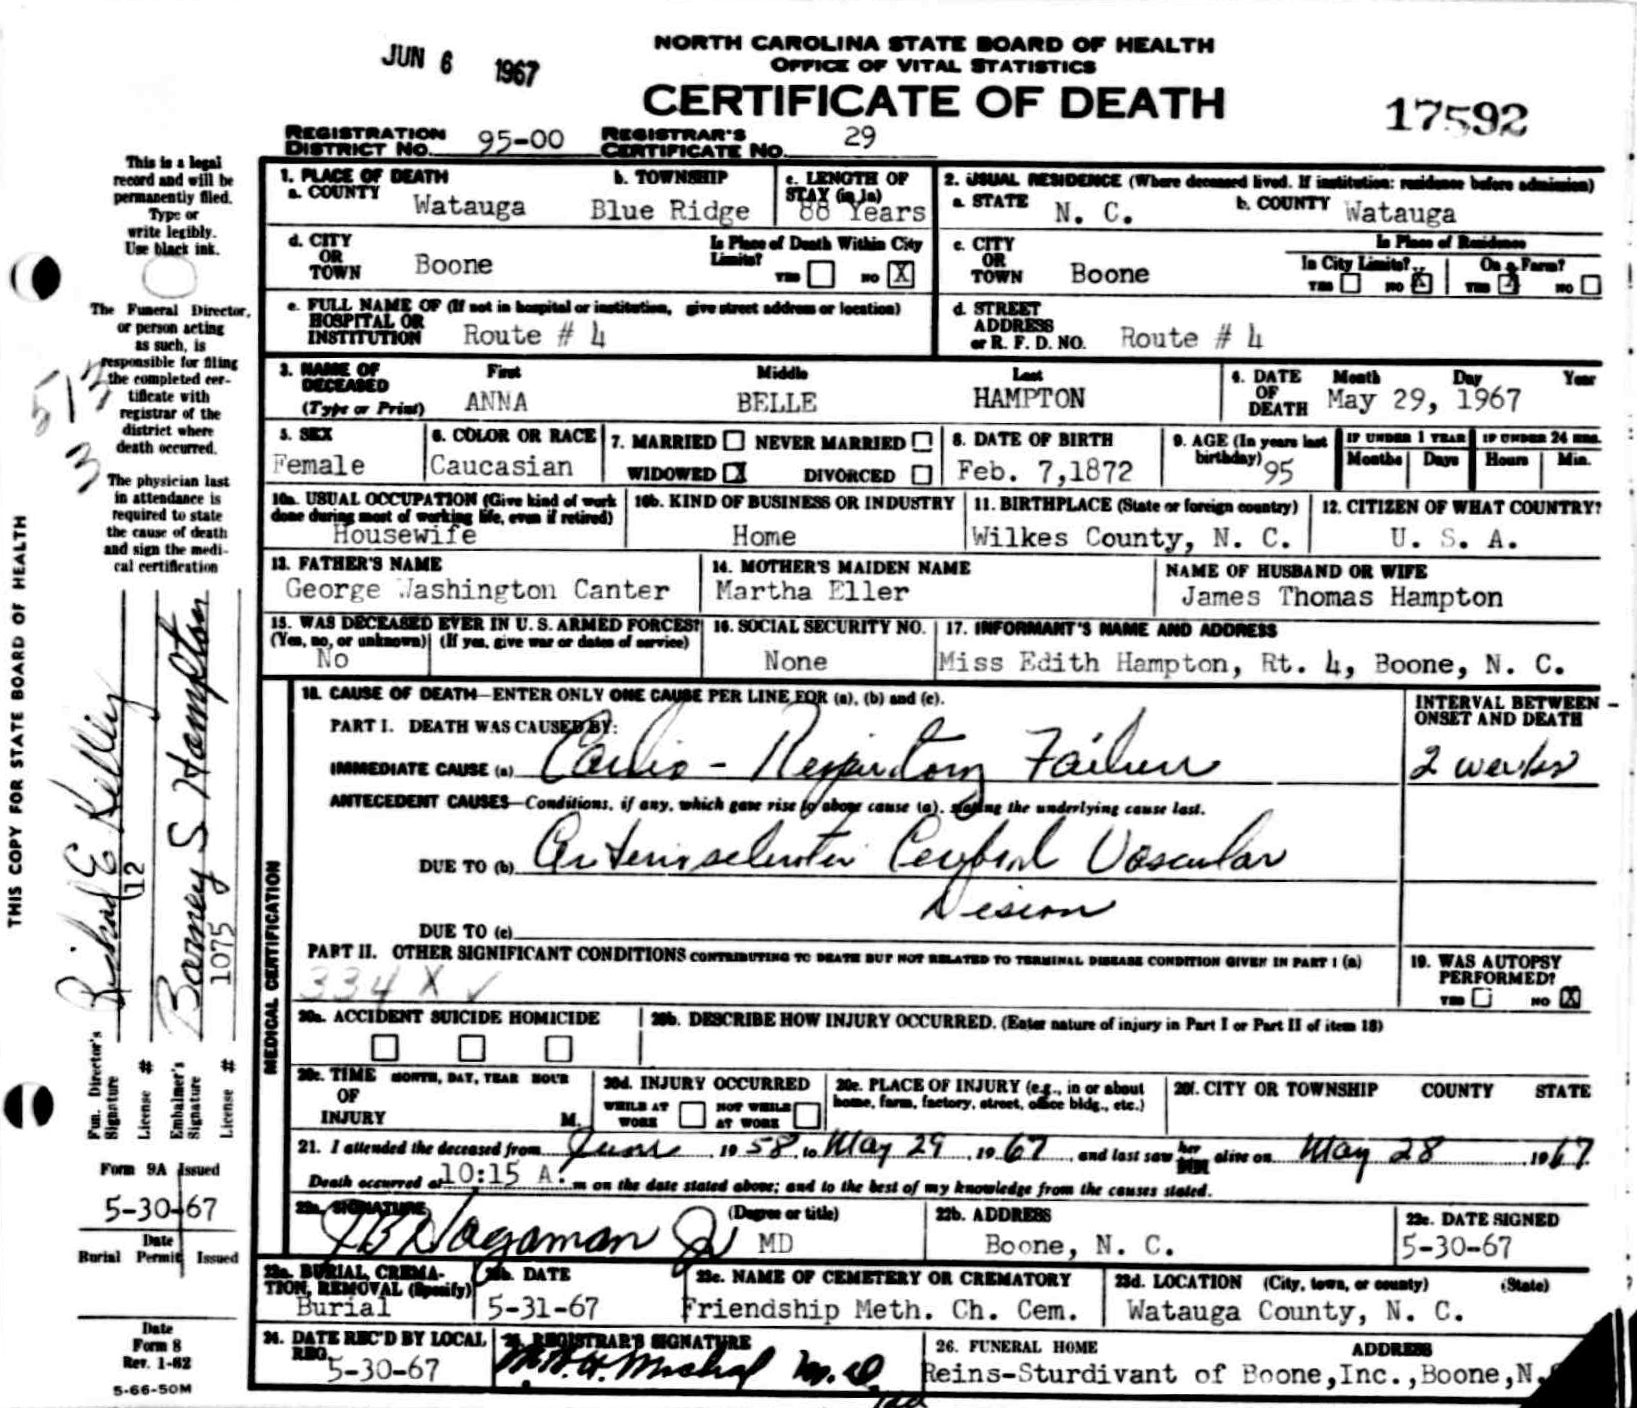 JUN 6 1967
NORTH CAROLINA STATE BOARD OF HEALTH
OFFICE OF VITAL STATISTICS
CERTIFICATE OF DEATH
17592
REGISTRATION DISTRICT NO. 95-00 REGISTRAR'S CERTIFICATE NO. 29
This is a legal
record and will be
permanently filed.
Type or
write legibly.
Use black ink.
The Funeral Director,
or person acting
as such, is
responsible for filing
the completed cer-
tificate with
registrar of the
district where
death occurred.
The physician last
in attendance is
required to state
the cause of death
and sign the medi-
cal certification
THIS COPY FOR STATE BOARD OF HEALTH
Fun. Director's Signature Richard E Kelley
License # 112
Embalmer's Signature Barney S Hampton
License # 1075
Form 9A Issued
5-30-67
Date
Burial Permit Issued
Date
Form 8
Rev. 1-62
5-66-50M
1. PLACE OF DEATH
a. COUNTY Watauga
b. TOWNSHIP Blue Ridge
c. LENGTH OF STAY (in 1a) 88 Years
2. USUAL RESIDENCE (Where deceased lived. If institution: residence before admission)
a. STATE N. C.
b. COUNTY Watauga
d. CITY OR TOWN Boone
Is Place of Death Within City Limits? YES NO X
c. CITY OR TOWN Boone
Is Place of Residence
In City Limits? YES NO X
On a Farm? YES X NO
e. FULL NAME OF (If not in hospital or institution, give street address or location)
HOSPITAL OR INSTITUTION Route # 4
d. STREET ADDRESS or R. F. D. NO. Route # 4
3. NAME OF DECEASED (Type or Print) First ANNA Middle BELLE Last HAMPTON
4. DATE OF DEATH Month Day Year May 29, 1967
5. SEX Female
6. COLOR OR RACE Caucasian
7. MARRIED NEVER MARRIED
WIDOWED X DIVORCED
8. DATE OF BIRTH Feb. 7,1872
9. AGE (In years last birthday) 95
IF UNDER 1 YEAR Months Days
IF UNDER 24 HRS. Hours Min.
10a. USUAL OCCUPATION (Give kind of work done during most of working life, even if retired) Housewife
10b. KIND OF BUSINESS OR INDUSTRY Home
11. BIRTHPLACE (State or foreign country) Wilkes County, N. C.
12. CITIZEN OF WHAT COUNTRY? U. S. A.
13. FATHER'S NAME George Washington Canter
14. MOTHER'S MAIDEN NAME Martha Eller
NAME OF HUSBAND OR WIFE James Thomas Hampton
15. WAS DECEASED EVER IN U. S. ARMED FORCES?
(Yes, no, or unknown) (If yes, give war or dates of service) No
16. SOCIAL SECURITY NO. None
17. INFORMANT'S NAME AND ADDRESS Miss Edith Hampton, Rt. 4, Boone, N. C.
MEDICAL CERTIFICATION
18. CAUSE OF DEATH—ENTER ONLY ONE CAUSE PER LINE FOR (a), (b) and (c).
INTERVAL BETWEEN ONSET AND DEATH
PART I. DEATH WAS CAUSED BY:
IMMEDIATE CAUSE (a) Cardio - Respiratory Failure 2 weeks
ANTECEDENT CAUSES—Conditions, if any, which gave rise to above cause (a), stating the underlying cause last.
DUE TO (b) Arteriosclerotic Cerebral Vascular
Disease
DUE TO (c)
PART II. OTHER SIGNIFICANT CONDITIONS CONTRIBUTING TO DEATH BUT NOT RELATED TO TERMINAL DISEASE CONDITION GIVEN IN PART I (a)
334 X ✓
19. WAS AUTOPSY PERFORMED? YES NO X
20a. ACCIDENT SUICIDE HOMICIDE
20b. DESCRIBE HOW INJURY OCCURRED. (Enter nature of injury in Part I or Part II of item 18)
20c. TIME OF INJURY MONTH, DAY, YEAR HOUR M.
20d. INJURY OCCURRED WHILE AT WORK NOT WHILE AT WORK
20e. PLACE OF INJURY (e.g., in or about home, farm, factory, street, office bldg., etc.)
20f. CITY OR TOWNSHIP COUNTY STATE
21. I attended the deceased from June, 1958, to May 29, 1967, and last saw her him alive on May 28 1967
Death occurred at 10:15 A. m on the date stated above; and to the best of my knowledge from the causes stated.
22a. SIGNATURE J B Hagaman Jr (Degree or title) MD
22b. ADDRESS Boone, N. C.
22c. DATE SIGNED 5-30-67
23a. BURIAL, CREMATION, REMOVAL (Specify) Burial
23b. DATE 5-31-67
23c. NAME OF CEMETERY OR CREMATORY Friendship Meth. Ch. Cem.
23d. LOCATION (City, town, or county) (State) Watauga County, N. C.
24. DATE REC'D BY LOCAL REG. 5-30-67
25. REGISTRAR'S SIGNATURE M.D.
26. FUNERAL HOME ADDRESS
Reins-Sturdivant of Boone,Inc.,Boone,N.